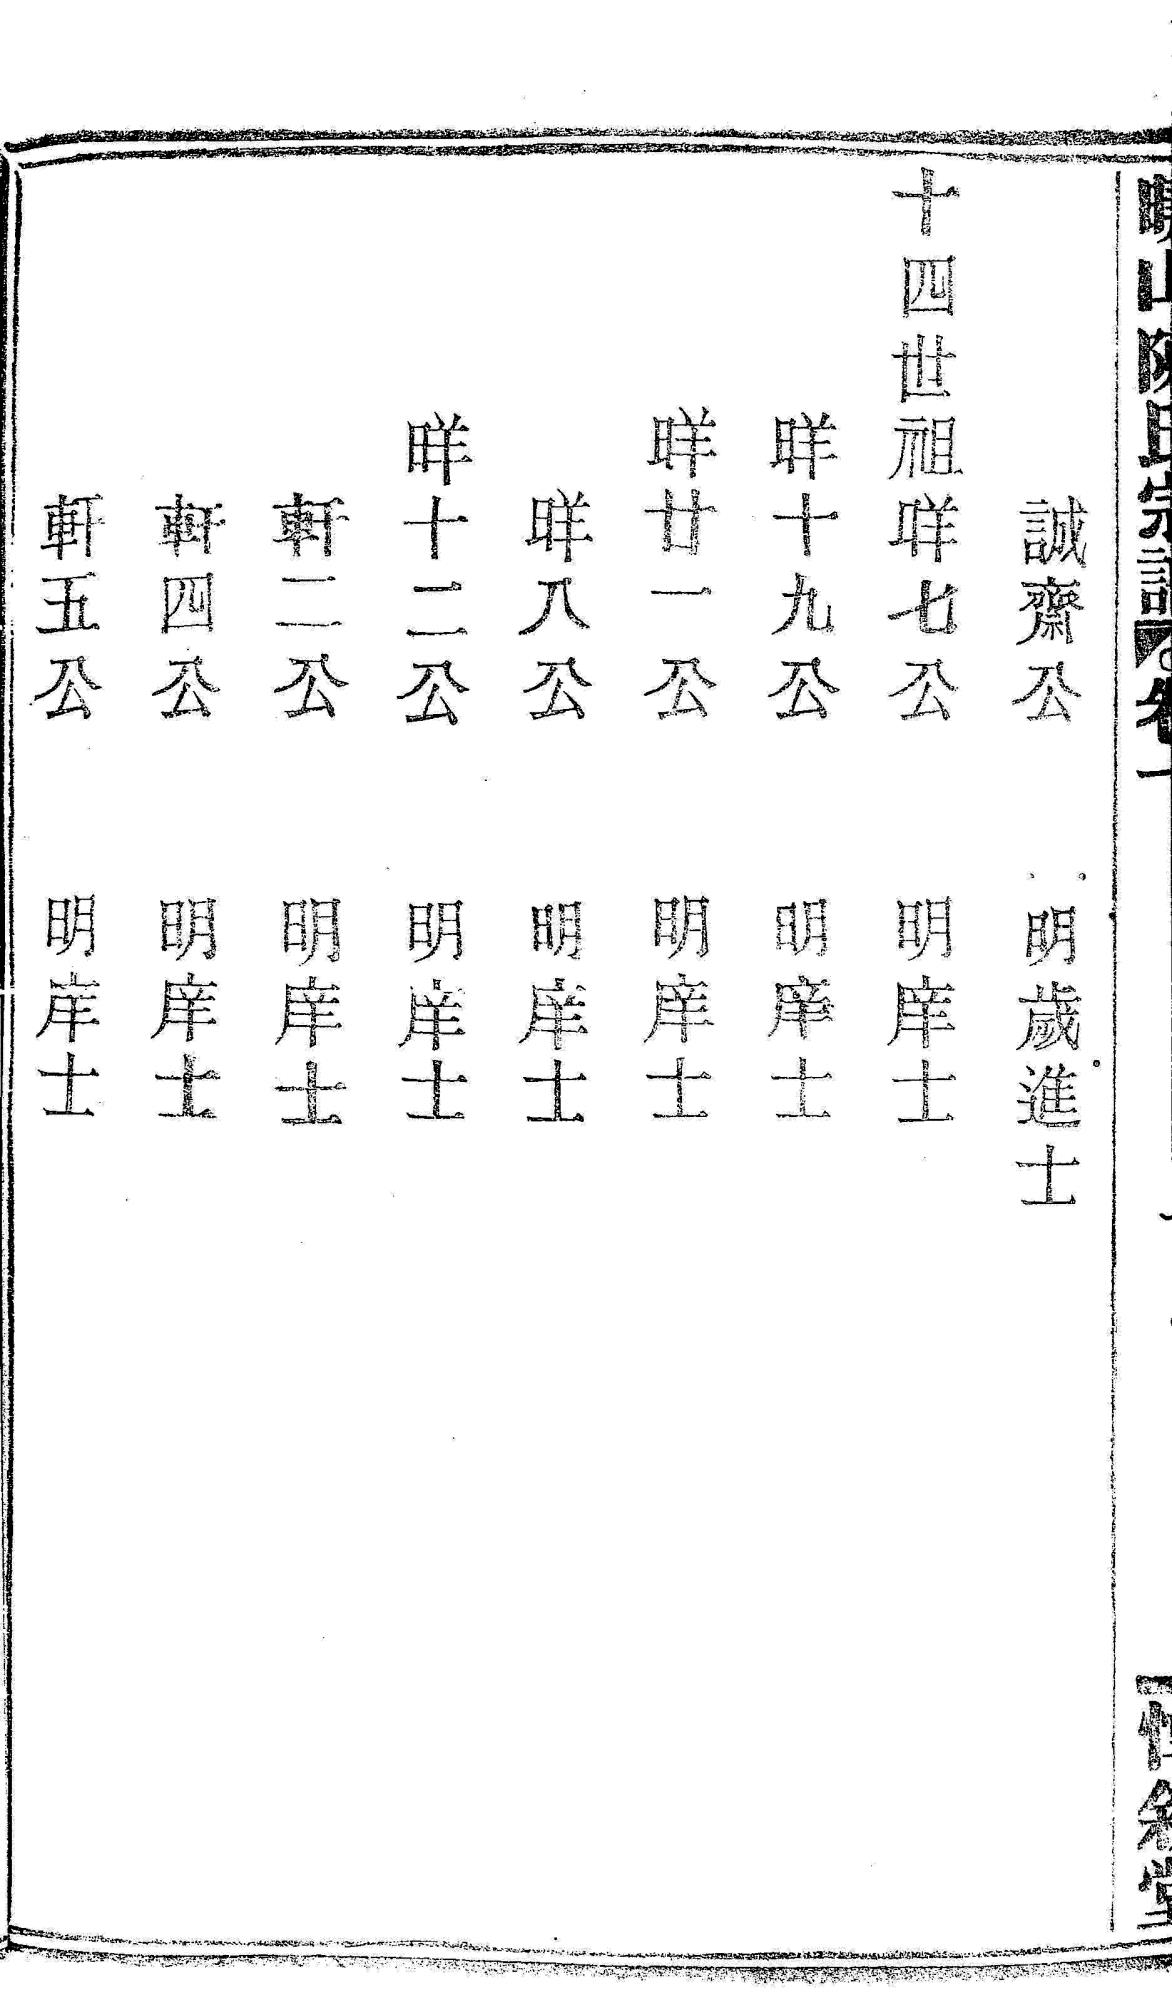 山陳氏宗譜 卷一 堂
誠齋公 明歲進士
十四世祖眻七公 明庠士
眻十九公 明庠士
眻廿一公 明庠士
眻八公 明庠士
眻十二公 明庠士
軒二公 明庠士
軒四公 明庠士
軒五公 明庠士